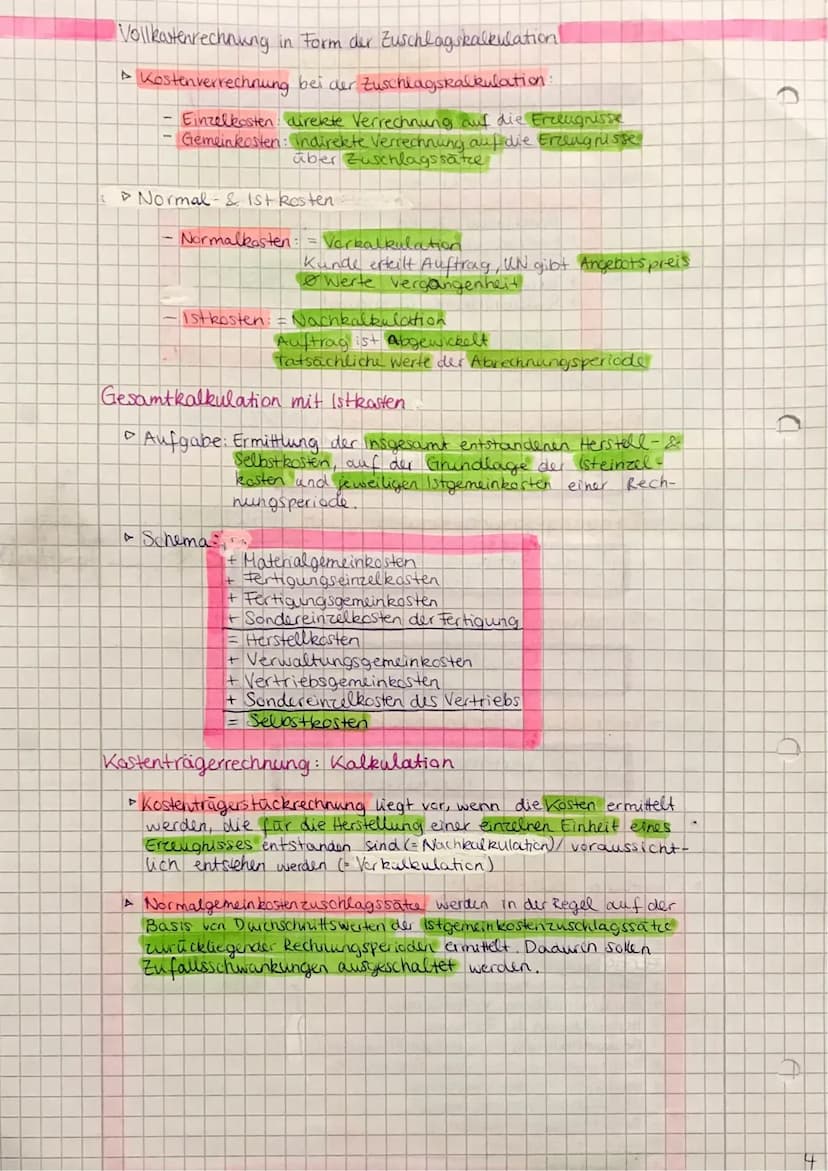 Vollkostenrechnung in Form der Zuschlagskalkulation
▷ Kostenverrechnung bei der Zuschlagskalkulation:
- Einzelkosten: direkte Verrechnung auf die Erzeugnisse
- Gemeinkosten: indirekte Verrechnung auf die Erzeugnisse
über Zuschlagssätze
▷ Normal- & Istkosten
- Normalkosten: = Vorkalkulation
Kunde erteilt Auftrag, UN gibt Angebotspreis
Ø Werte Vergangenheit
- Istkosten: = Nachkalkulation
Auftrag ist abgewickelt
Tatsächliche Werte der Abrechnungsperiode
Gesamtkalkulation mit Istkosten
▷ Aufgabe: Ermittlung der insgesamt entstandenen Herstell- &
Selbstkosten, auf der Grundlage der Isteinzel-
kosten und jeweiligen Istgemeinkosten einer Rech-
nungsperiode.
▷ Schema:
+ Materialgemeinkosten
+ Fertigungseinzelkosten
+ Fertigungsgemeinkosten
+ Sondereinzelkosten der Fertigung
= Herstellkosten
+ Verwaltungsgemeinkosten
+ Vertriebsgemeinkosten
+ Sondereinzelkosten des Vertriebs
= Selbstkosten
Kostenträgerrechnung: Kalkulation
▷ Kostenträgerstückrechnung liegt vor, wenn die Kosten ermittelt
werden, die für die Herstellung einer einzelnen Einheit eines
Erzeugnisses entstanden sind (= Nachkalkulation) / voraussicht-
lich entstehen werden (= Vorkalkulation)
▷ Normalgemeinkostenzuschlagssätze werden in der Regel auf der
Basis von Durchschnittswerten der Istgemeinkostenzuschlagssätze
zurückliegender Rechnungsperioden ermittelt. Dadurch sollen
Zufallsschwankungen ausgeschaltet werden.
4